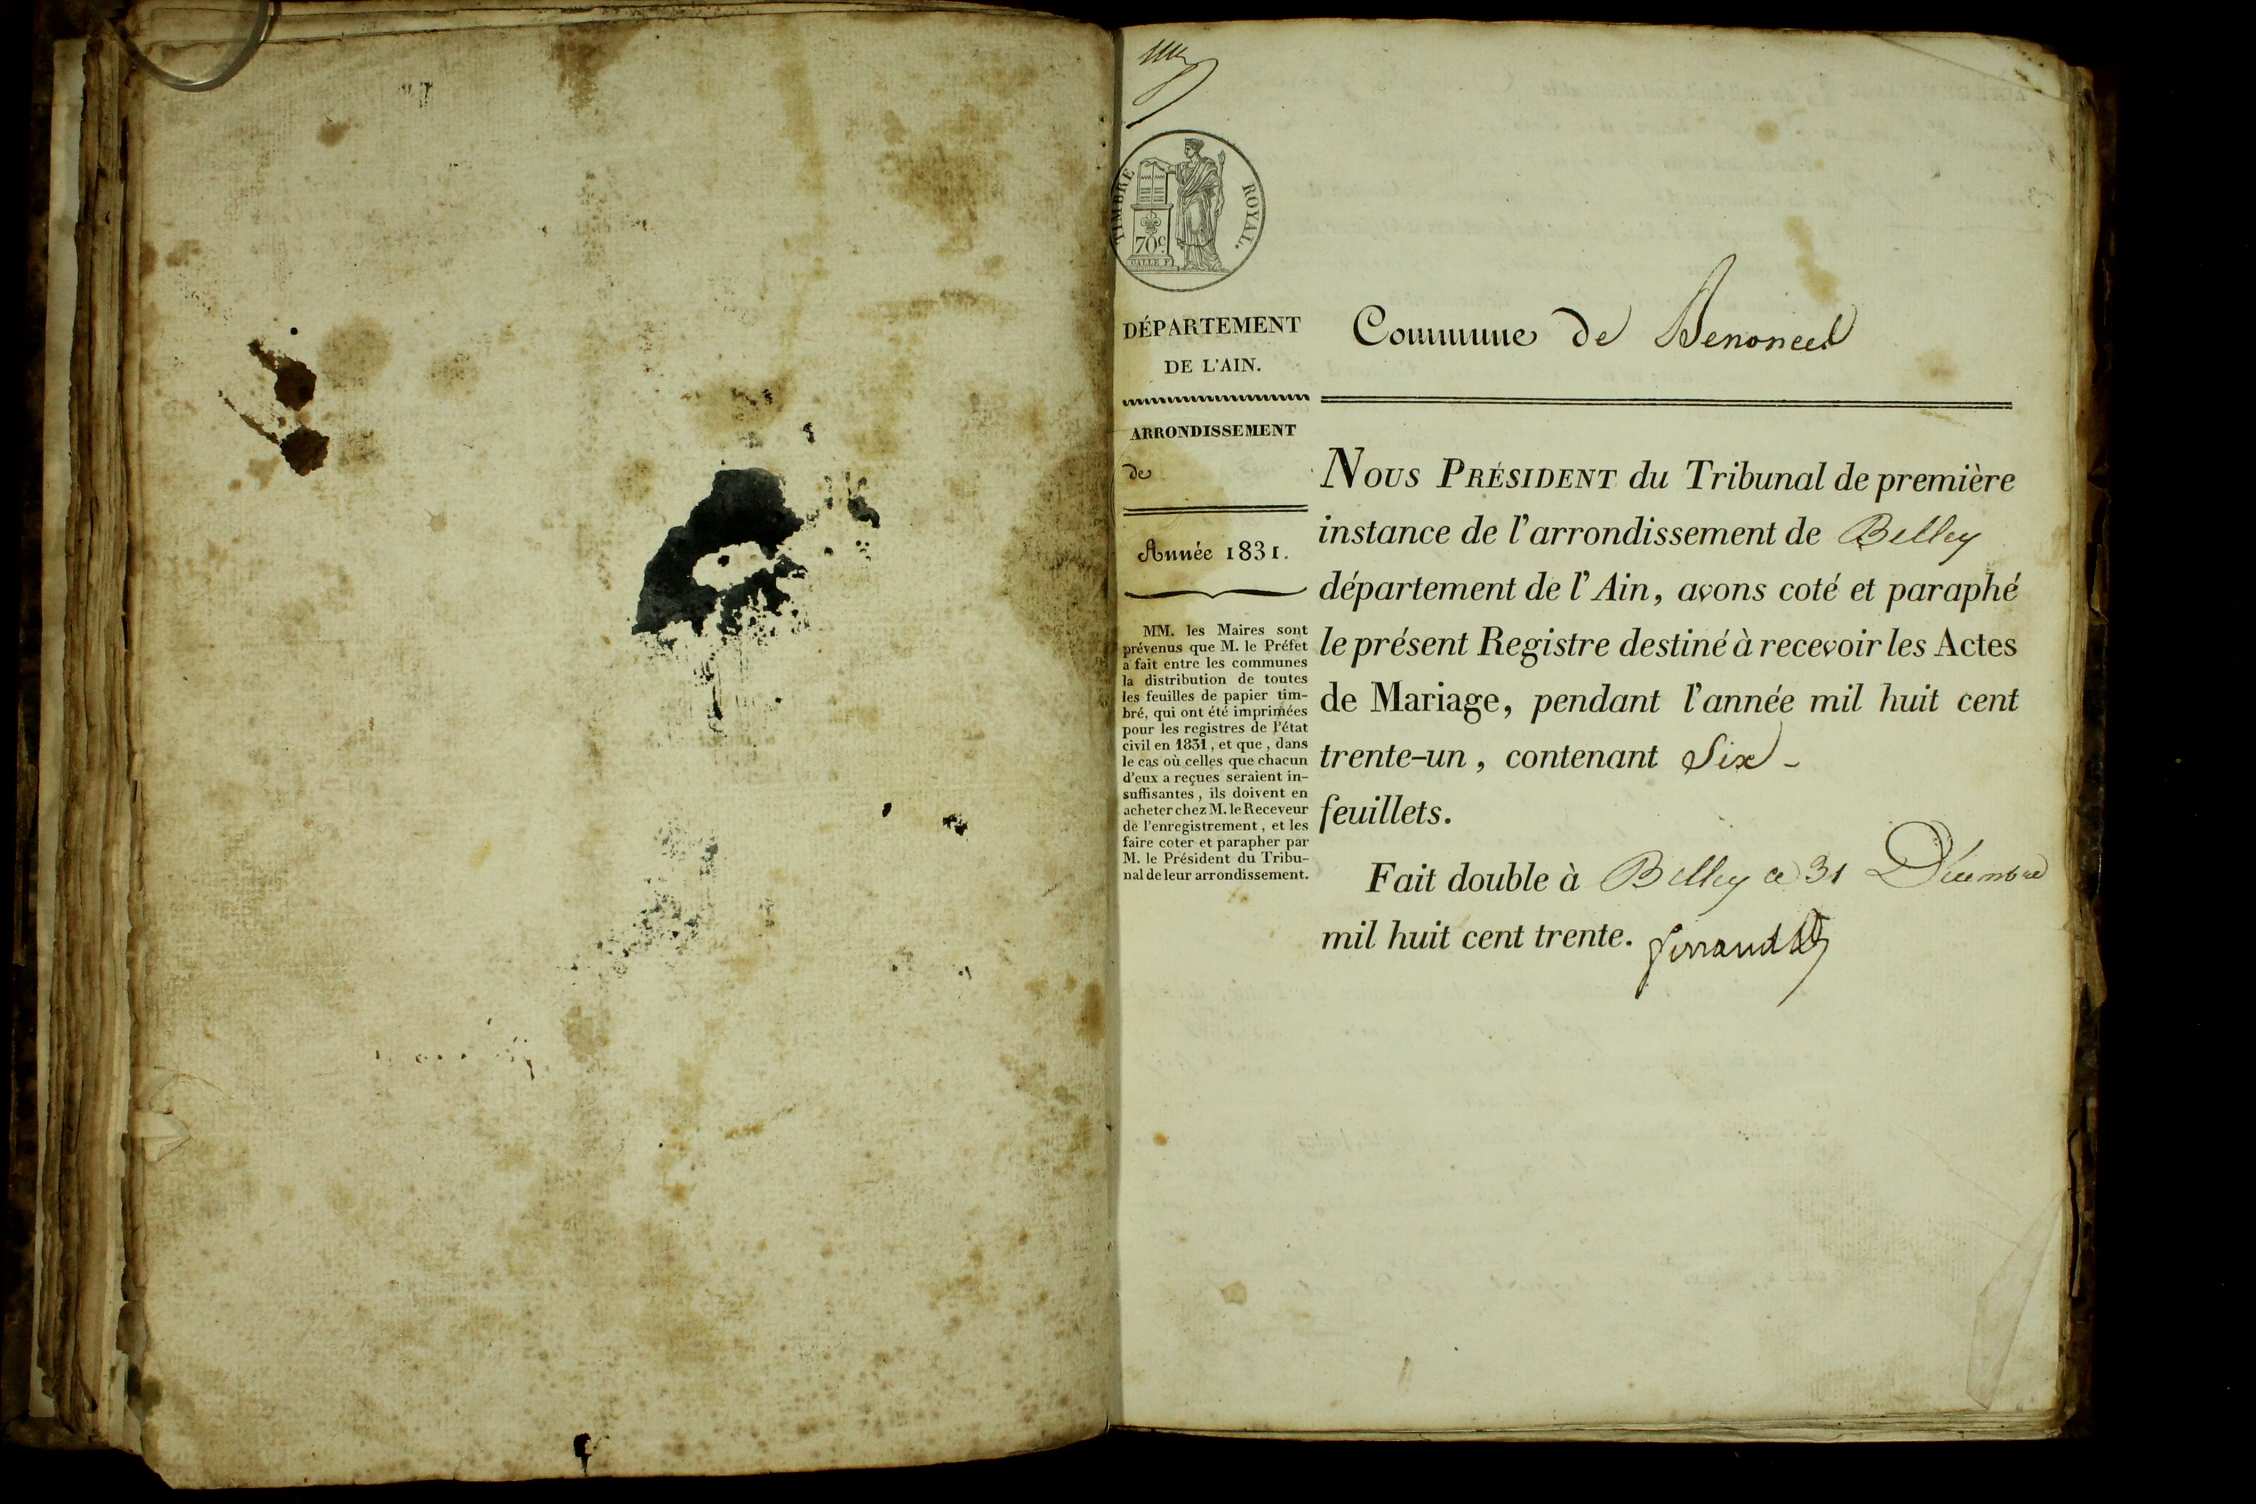 TIMBRE ROYAL.
70c
DÉPARTEMENT
DE L'AIN.
ARRONDISSEMENT
de
Année 1831.
MM. les Maires sont
prévenus que M. le Préfet
a fait entre les communes
la distribution de toutes
les feuilles de papier tim-
bré, qui ont été imprimées
pour les registres de l'état
civil en 1831, et que, dans
le cas où celles que chacun
d'eux a reçues seraient in-
suffisantes, ils doivent en
acheter chez M. le Receveur
de l'enregistrement, et les
faire coter et parapher par
M. le Président du Tribu-
nal de leur arrondissement.
Commune de Benonces
NOUS PRÉSIDENT du Tribunal de première
instance de l'arrondissement de Belley
département de l'Ain, avons coté et paraphé
le présent Registre destiné à recevoir les Actes
de Mariage, pendant l'année mil huit cent
trente-un, contenant Six -
feuillets.
Fait double à Belley ce 31 Décembre
mil huit cent trente.